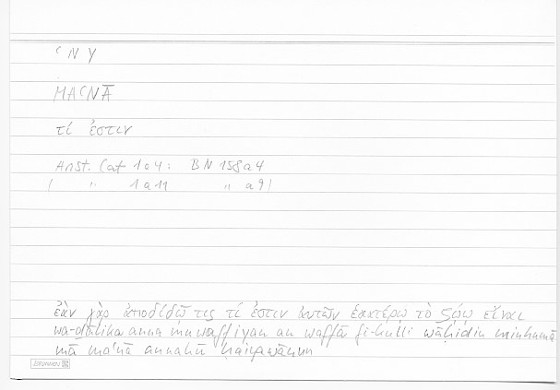 ʿNY
MAʿNĀ
τί ἐστιν
Arist. Cat 1 a 4 : BN 158 a 4
( " 1 a 11 " a 9)
ἐὰν γὰρ ἀποδιδῷ τις τί ἐστιν αὐτῶν ἑκατέρῳ τὸ ζῴῳ εἶναι
wa-ḏālika anna muwaffiyan in waffā fī-kulli wāḥidin minhumā
mā maʿnā annahū ḥaiyawānun